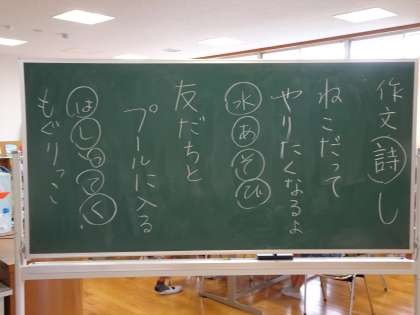 作文(詩)し
ねこだって
やりたくなるよ
水あそび
友だちと
プールに入る
もぐりっこ